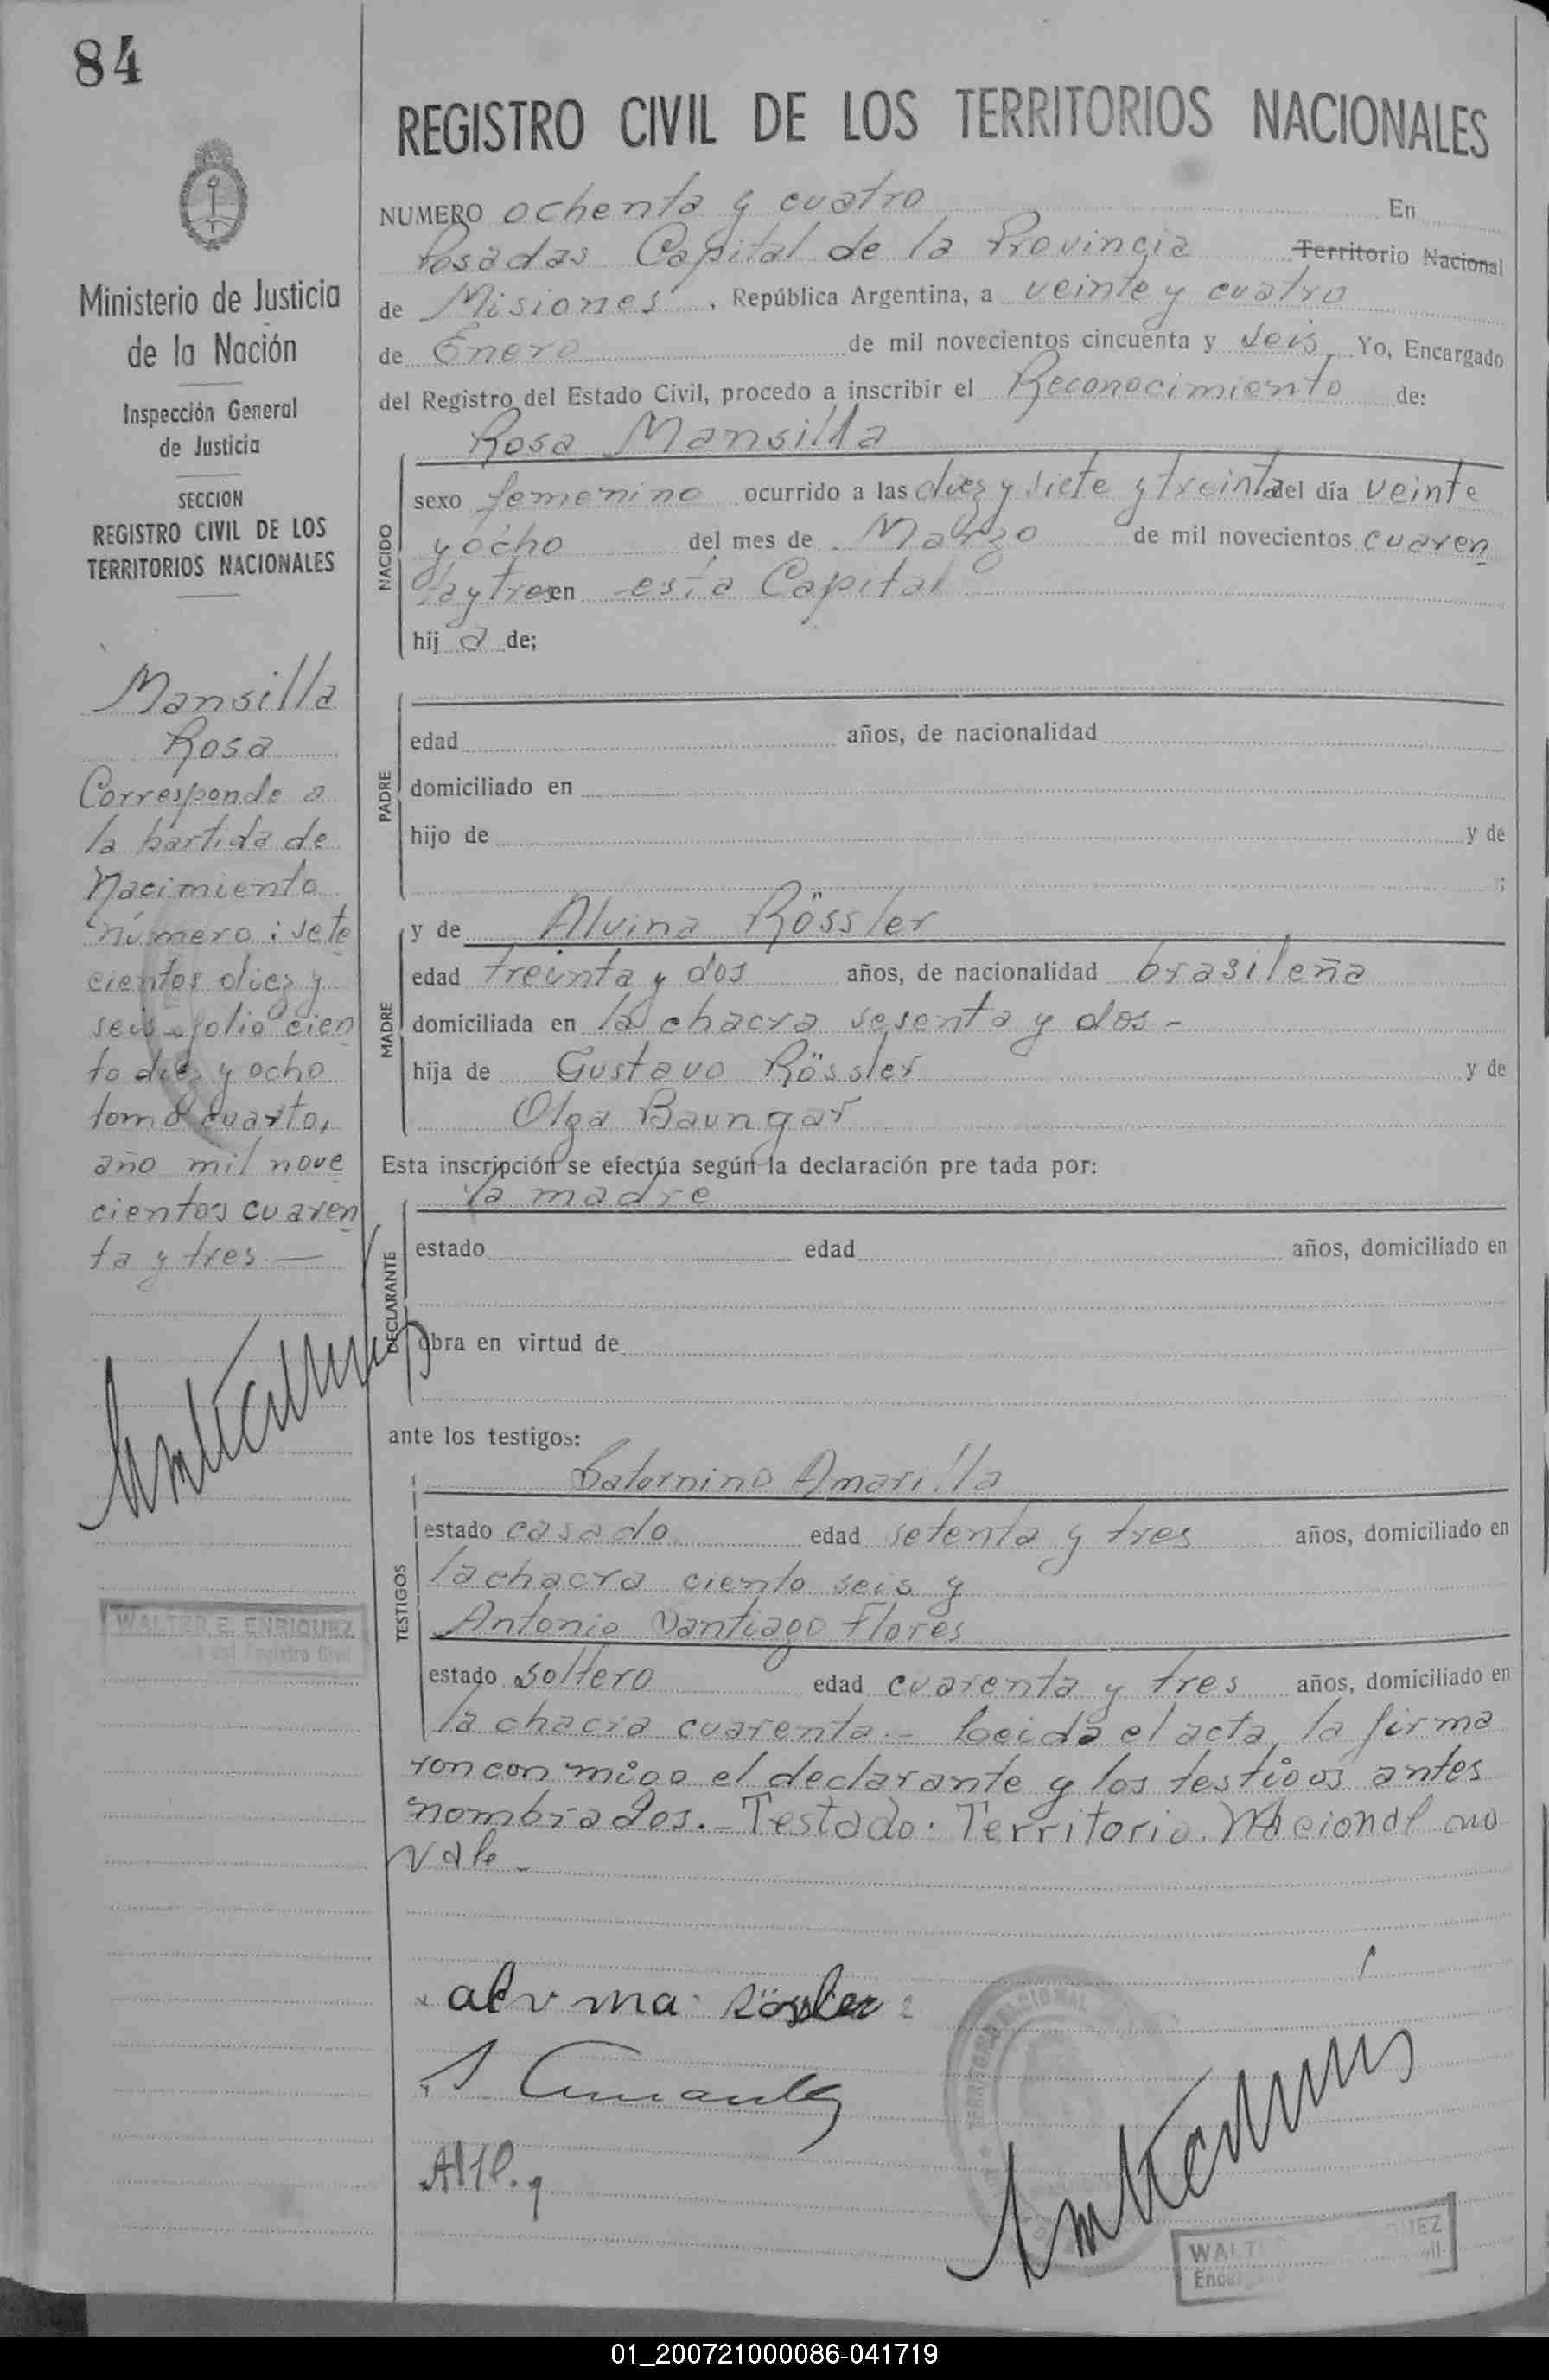 84
REGISTRO CIVIL DE LOS TERRITORIOS NACIONALES
Ministerio de Justicia
de la Nación
Inspección General
de Justicia
SECCION
REGISTRO CIVIL DE LOS
TERRITORIOS NACIONALES
Mansilla
Rosa
Corresponde a
la partida de
Nacimiento
número: sete
cientos diez y
seis folio cien
to diez y ocho
tomo cuarto,
año mil nove
cientos cuaren
ta y tres —
WALTER E. ENRIQUEZ
Registro Civil
NUMERO ochenta y cuatro En
Posadas Capital de la Provincia Territorio Nacional
de Misiones, República Argentina, a veinte y cuatro
de Enero de mil novecientos cincuenta y seis, Yo, Encargado
del Registro del Estado Civil, procedo a inscribir el Reconocimiento de:
Rosa Mansilla
NACIDO
sexo femenino ocurrido a las diez y siete y treinta del día veinte
y ocho del mes de Marzo de mil novecientos cuaren
ta y tres en esta Capital
hij a de;
PADRE
edad años, de nacionalidad
domiciliado en
hijo de y de
;
MADRE
y de Alvina Rössler
edad treinta y dos años, de nacionalidad brasileña
domiciliada en la chacra sesenta y dos -
hija de Gustavo Rössler y de
Olga Baungar
Esta inscripción se efectúa según la declaración pre tada por:
la madre
DECLARANTE
estado edad años, domiciliado en
obra en virtud de
ante los testigos:
TESTIGOS
Saturnino Amarilla
estado casado edad setenta y tres años, domiciliado en
la chacra ciento seis y
Antonio Santiago Flores
estado soltero edad cuarenta y tres años, domiciliado en
la chacra cuarenta.- Leida el acta, la firma
ron con migo el declarante y los testigos antes
nombrados.- Testado: Territorio. Nacional no
vale -
alvina Rössler
WALT EZ
01_200721000086-041719